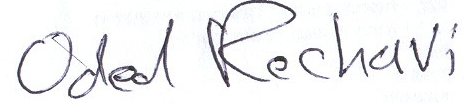 Oded Rechavi